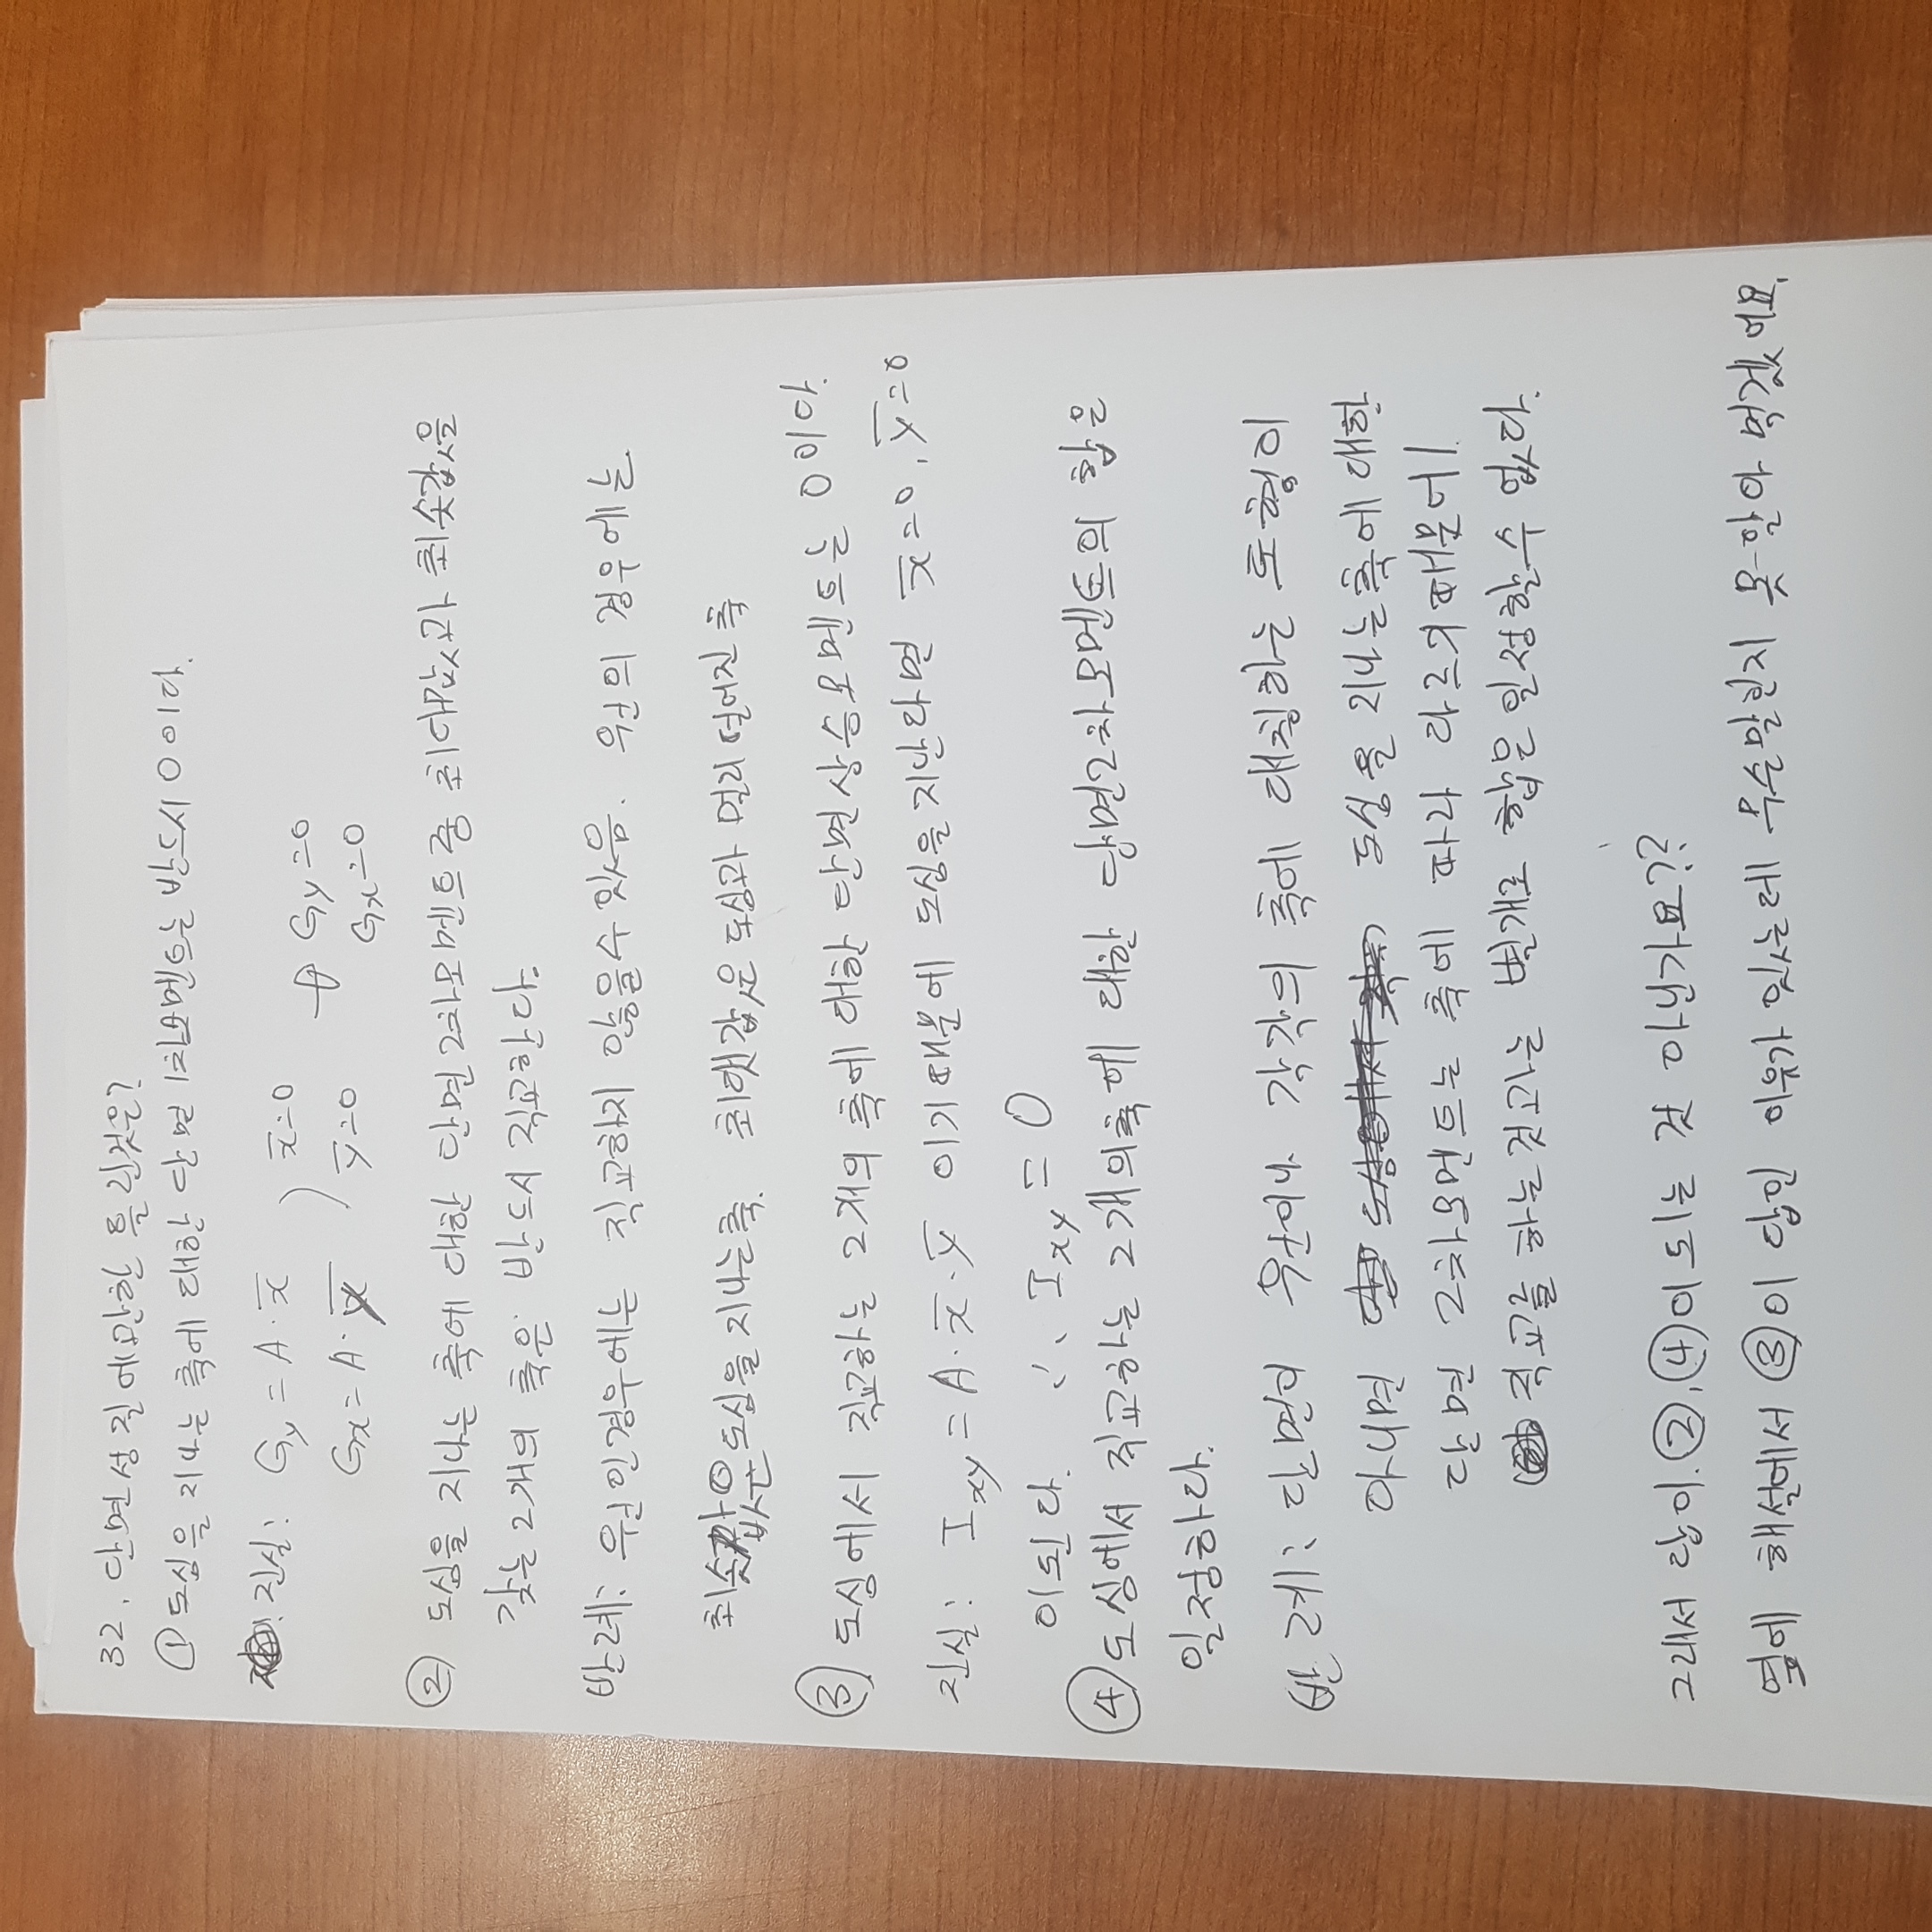 32. 단면성질에 관한 틀린것은?
① 도심을 지나는 축에 대한 단면 1차모멘트는 반드시 0이다.
진실: Gy = A·x̄ ) x̄=0 → Gy=0
Gx = A·ȳ ) ȳ=0 Gx=0
② 도심을 지나는 축에 대한 단면2차모멘트 중 최대값과 최솟값을
갖는 2개의 축은 반드시 직교한다.
반례: 원인경우에는 직교하지 않을수 있음. 원의 경우에는
최솟값은 도심을 지나는축. 최댓값은 도심과 멀리 떨어진 축
③ 도심에서 직교하는 2개의 축에 대한 단면상승모멘트는 0이다.
진실: Ixy = A·x̄·ȳ 이기 때문에 도심을 지난다면 x̄=0, ȳ=0
이된다. ∴ Ixy = 0
④ 도심에서 직교하는 2개의축에 대한 단면2차모멘트의 합은
일정하다.
반례: 단면이 원이나 각각의 축에 대칭하는 도형이
아니면 도심을 지나는축에 대한
단면 2차모멘트는 축에 따라 다르기때문에
직교를 하는것고는 별개로 합은 일정할수 없다.
그래서 답이. ②, ④이 되는 것 아닌가요??
옆에 해설에서 ③이 답인 이유가 있는데 무슨말인지 못-알아 먹겠어요.